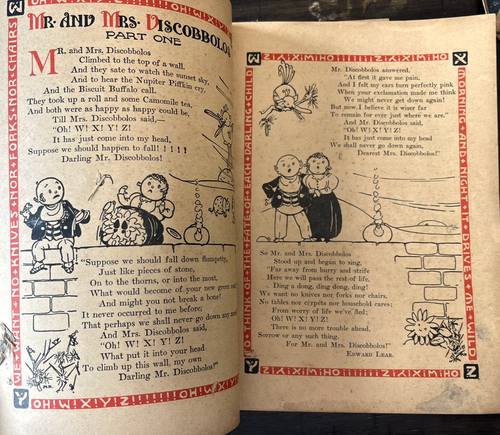 MR. AND MRS. DISCOBBOLOS
PART ONE
MR. and Mrs. Discobbolos
Climbed to the top of a wall,
And they sate to watch the sunset sky,
And to hear the Nupiter Piffkin cry,
And the Biscuit Buffalo call.
They took up a roll and some Camomile tea,
And both were as happy as happy could be,
Till Mrs. Discobbolos said,—
"Oh! W! X! Y! Z!
It has just come into my head
Suppose we should happen to fall! ! ! ! !
Darling Mr. Discobbolos!
"Suppose we should fall down flumpetty,
Just like pieces of stone,
On to the thorns, or into the moat,
What would become of your new green coat
And might you not break a bone!
It never occurred to me before;
That perhaps we shall never go down any more
And Mrs. Discobbolos said,
"Oh! W! X! Y! Z!
What put it into your head
To climb up this wall, my own
Darling Mr. Discobbolos!"
WE WANT NO KNIVES NOR FORKS NOR CHAIRS
Mr. Discobbolos answered,
"At first it gave me pain,
And I felt my ears turn perfectly pink
When your exclamation made me think
We might never get down again!
But now I believe it is wiser far
To remain for ever just where we are."
And Mr. Discobbolos said
"Oh! W! X! Y! Z!
It has just come into my head
We shall never go down again,
Dearest Mrs. Discobbolos!"
So Mr. and Mrs. Discobbolos
Stood up and began to sing,
"Far away from hurry and strife
Here we will pass the rest of life,
Ding a dong, ding dong, ding!
We want no knives nor forks nor chairs,
No tables nor carpets nor household cares;
From worry of life we've fled;
Oh! W! X! Y! Z!
There is no more trouble ahead.
Sorrow or any such thing,
For Mr. and Mrs. Discobbolos!"
EDWARD LEAR.
TO THINK OF THE FATE OF EACH DARLING CHILD
MORNING AND NIGHT IT DRIVES ME WILD
OH! W! X! Y! Z!